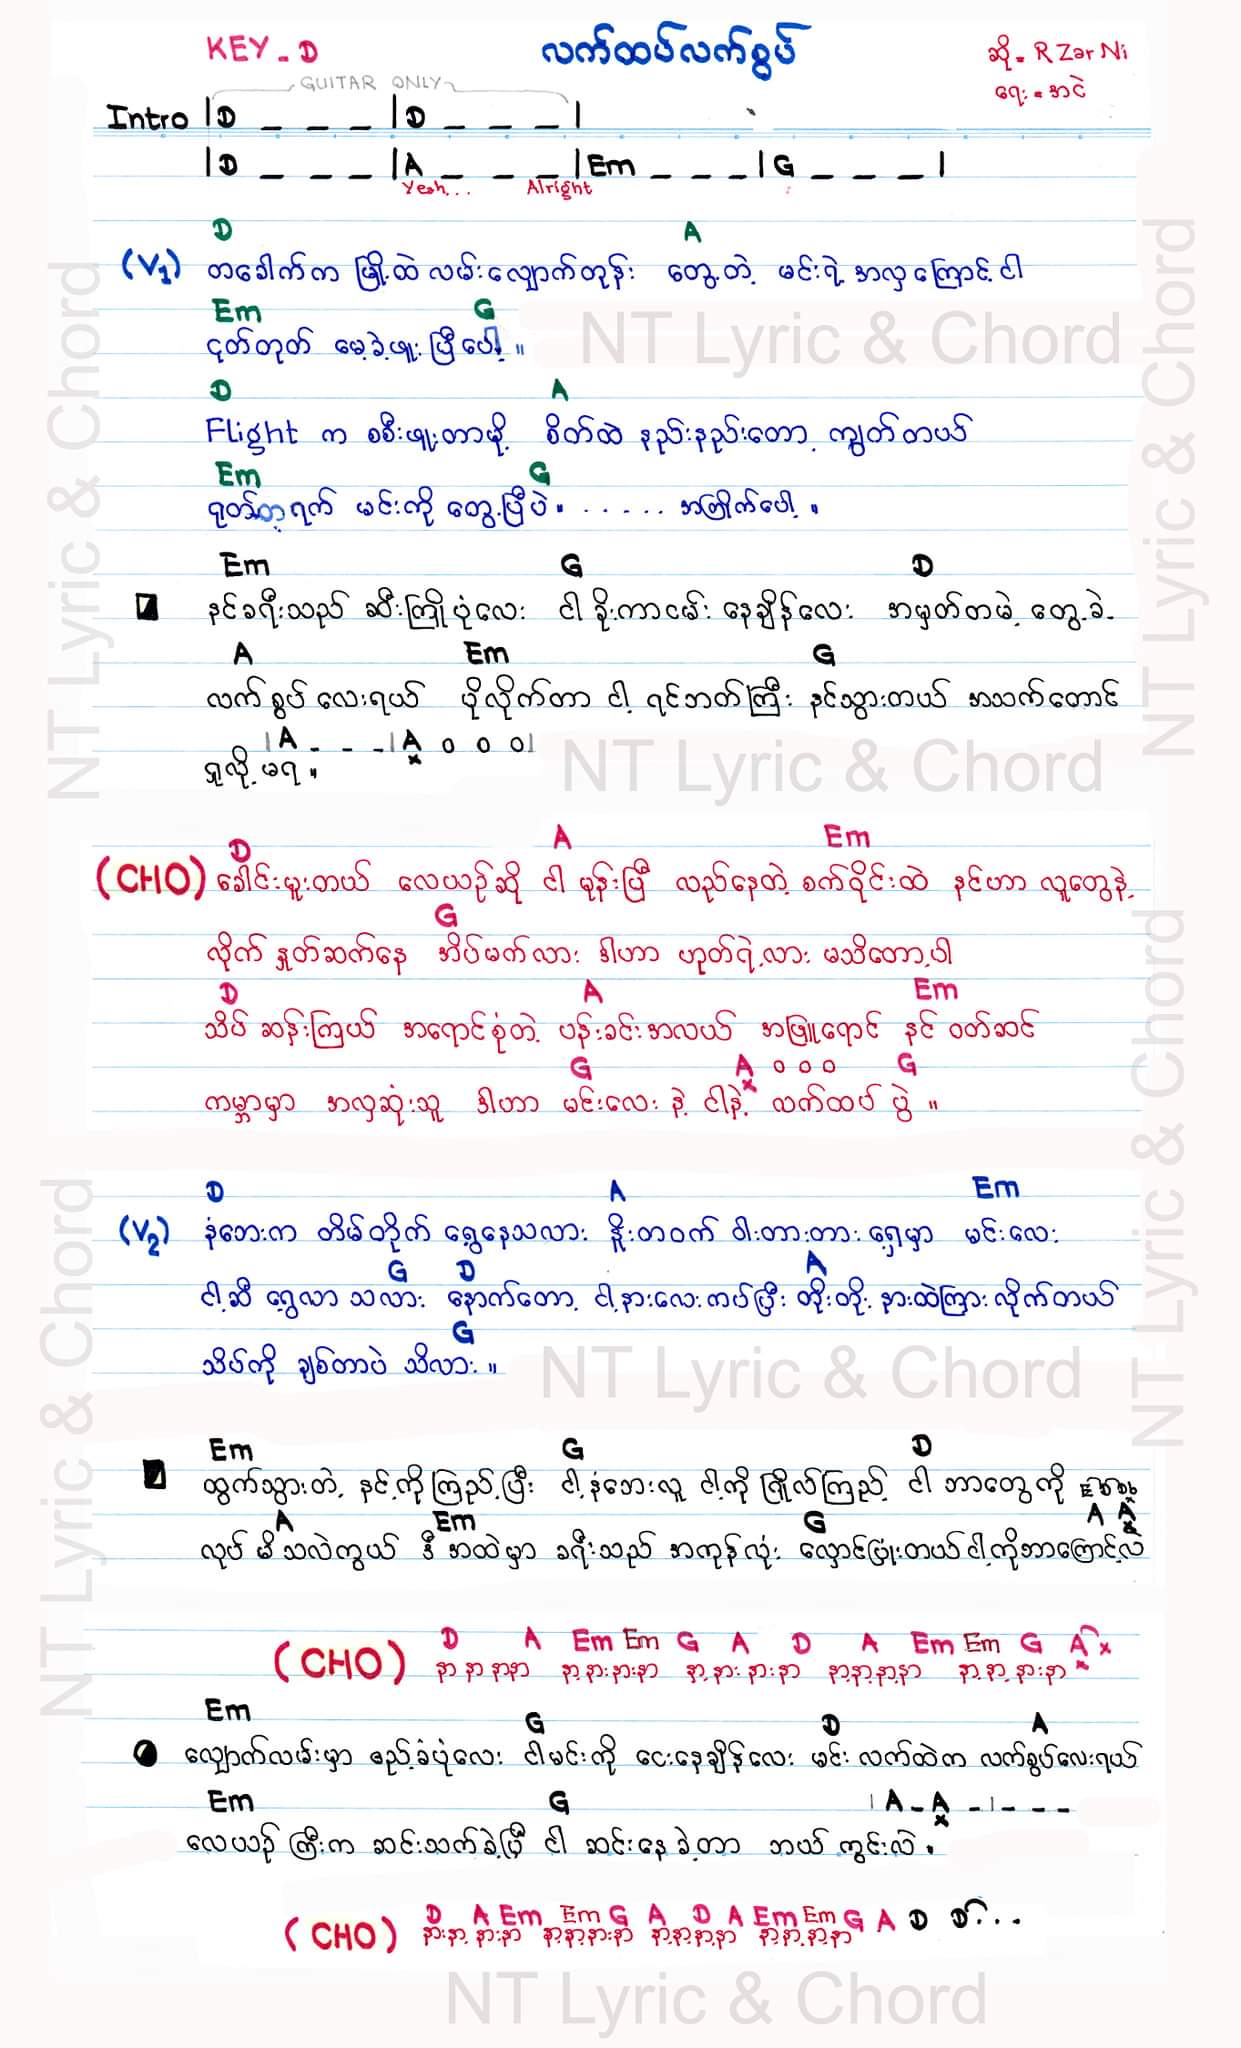 KEY - D
လက်ထပ်လက်စွပ်
ဆို = R Zar Ni
ရေး = အငဲ
GUITAR ONLY
Intro |D _ _ _ |D _ _ _ |
|D _ _ _ |A _ _ _ |Em _ _ _ |G _ _ _ |
Yeah... Alright
D A
(V1) တခေါက်က မြို့ထဲ လမ်းလျှောက်တုန်း တွေ့တဲ့ မင်းရဲ့ အလှကြောင့် ငါ
Em G
ငုတ်တုတ် မေ့ခဲ့ဖူးပြီပေါ့။
D A
Flight က စစီးဖူးတာမို့ စိတ်ထဲ နည်းနည်းတော့ ကျွတ်တယ်
Em G
ရုတ်တရက် မင်းကို တွေ့ပြီပဲ။ ..... အကြိုက်ပေါ့။
Em G D
နင်ခရီးသည် ဆီးကြိုပုံလေး ငါ ခိုးကာငမ်း နေချိန်လေး အမှတ်တမဲ့ တွေ့ခဲ့
A Em G
လက်စွပ်လေးရယ် ပိုလိုက်တာ ငါ့ ရင်ဘတ်ကြီး နင်သွားတယ် အသက်တောင်
|A - - -|A o o o|
x
ရှူလို့ မရ။
D A Em
(CHO) ခေါင်းမူးတယ် လေယာဉ်ဆို ငါ မုန်းပြီ လည်နေတဲ့ စက်ဝိုင်းထဲ နင်ဟာ လူတွေနဲ့
G
လိုက် နှုတ်ဆက်နေ အိပ်မက်လား ဒါဟာ ဟုတ်ရဲ့လား မသိတော့ပါ
D A Em
သိပ် ဆန်းကြယ် အရောင်စုံတဲ့ ပန်းခင်းအလယ် အဖြူရောင် နင် ဝတ်ဆင်
G A o o o G
x
ကမ္ဘာမှာ အလှဆုံးသူ ဒါဟာ မင်းလေး နဲ့ ငါနဲ့ လက်ထပ် ပွဲ ။
D A Em
(V2) နံဘေးက တိမ်တိုက် ရွေ့နေသလား နှိုးတဝက် ဝါးတားတား ရှေ့မှာ မင်းလေး
G D A
ငါ့ဆီ ရွေ့လာ သလား နောက်တော့ ငါ့နားလေးကပ်ပြီး တိုးတိုး နားထဲကြားလိုက်တယ်
G
သိပ်ကို ချစ်တာပဲ သိလား ။
Em G D
ထွက်သွားတဲ့ နင့်ကိုကြည့်ပြီး ငါ့နံဘေးလူ ငါ့ကို ပြိုလ်ကြည့် ငါ ဘာတွေကို
A Em G A A
x
လုပ် မိသလဲကွယ် ဒီအထဲမှာ ခရီးသည် အကုန်လုံး လှောင်ပြုံးတယ် ငါ့ကိုဘာကြောင့်လဲ
D A Em Em G A D A Em Em G A x
(CHO) နာ နာ နာနာ နာ့နားနားနာ နာ့နားနားနာ နာ့နာ့နာ့နာ နာ့နာ့နားနာ
Em G D A
လျှောက်လမ်းမှာ ဧည့်ခံပုံလေး ငါမင်းကို ငေးနေချိန်လေး မင်း လက်ထဲက လက်စွပ်လေးရယ်
Em G |A - A - | - - -
x
လေယာဉ်ကြီးက ဆင်းသက်ခဲ့ပြီ ငါ ဆင်းနေခဲ့တာ ဘယ် ကွင်းလဲ ။
D A Em Em G A D A Em Em G A D D...
(CHO) နားနာ့ နားနာ နာ့နာ့နားနာ နာ့နာ့နာ့နာ နာ့နာ့နာ့နာ
NT Lyric & Chord
NT Lyric & Chord
NT Lyric & Chord
NT Lyric & Chord
NT Lyric & Chord
NT Lyric & Chord
NT Lyric & Chord
NT Lyric & Chord